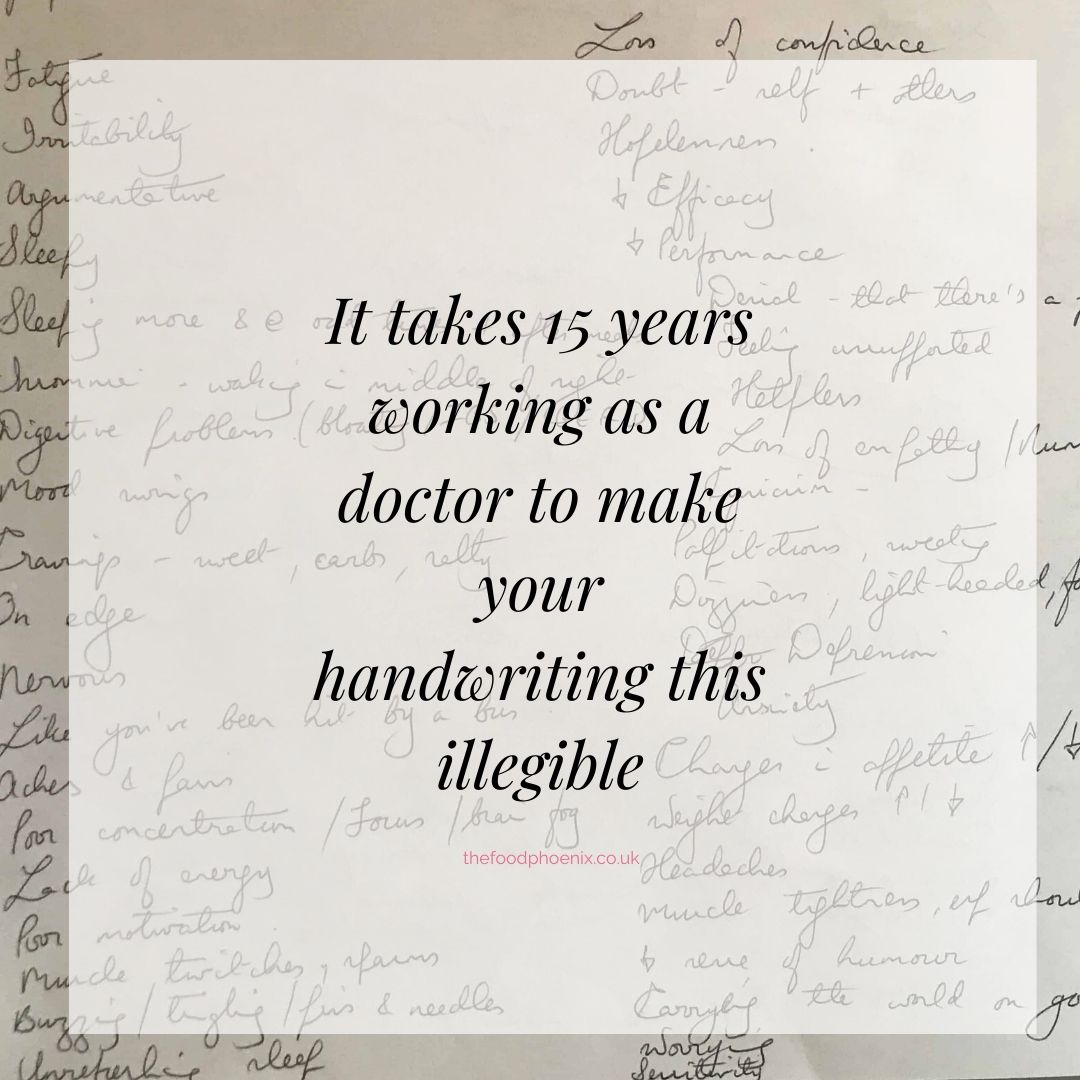 Loss of confidence
Fatigue
Doubt - self + others
Irritability
Hopelessness.
Argumentative
↓ Efficacy
Sleepy
↓ Performance
Denial - that there's a
Sleeping more &
Feeling unsupported
Insomnia - waking in middle of night
Helpless
Digestive problems (
Loss of empathy /
Mood swings
Cynicism -
Cravings - sweet, carbs, salty
Palpitations, sweating
On edge
Dizziness, light-headed,
Depression
Nervous
Anxiety
Like you've been hit by a bus
Changes in appetite ↑/↓
Aches & pains
Weight changes ↑/↓
Poor concentration / Focus / brain fog
Headaches
Lack of energy
Muscle tightness, esp
Poor motivation.
↓ sense of humour
Muscle twitches, spasms
Carrying the world on
Buzzing / tingling / pins & needles
Worrying
Unrefreshing sleep
Sensitivity
It takes 15 years
working as a
doctor to make
your
handwriting this
illegible
thefoodphoenix.co.uk